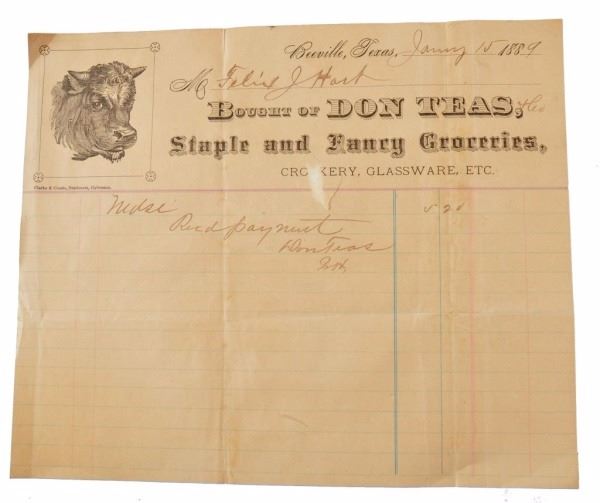 Beeville, Texas, Jany 15 1889
M Felix J Hart
BOUGHT OF DON TEAS, & Co
Staple and Fancy Groceries,
CROCKERY, GLASSWARE, ETC.
Clarke & Courts, Stationers, Galveston.
Mdse 5 20
Recd payment
Don Teas